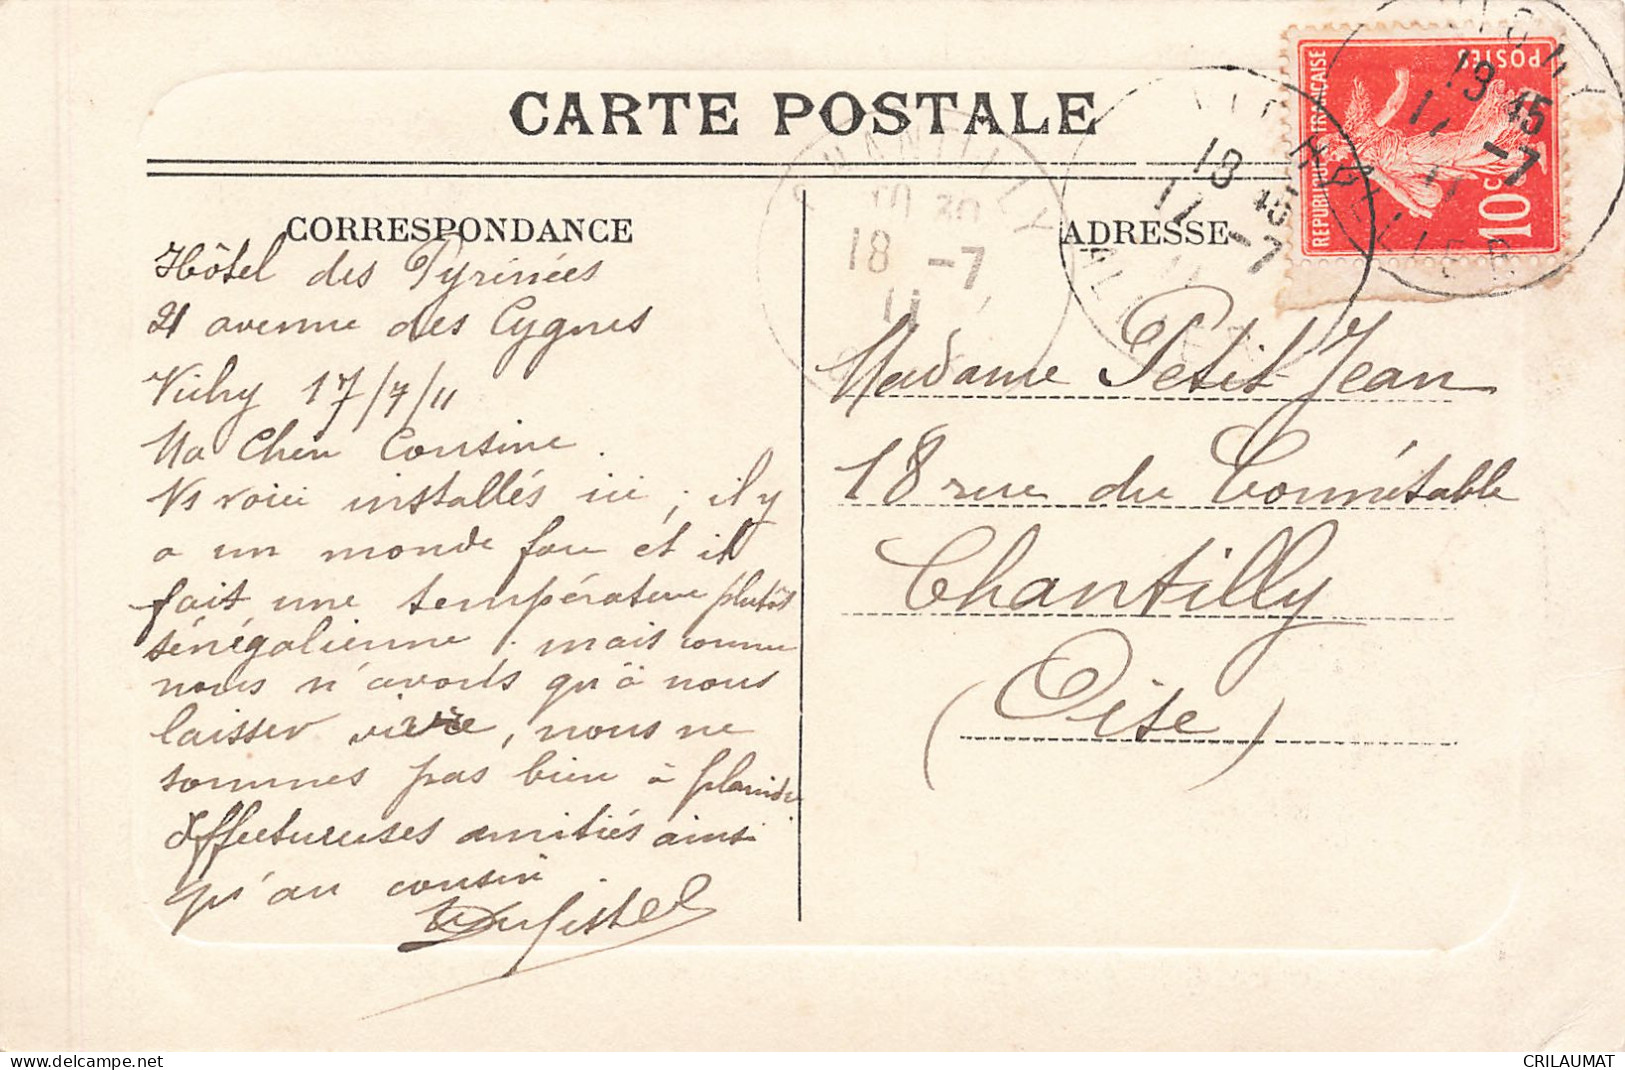 CARTE POSTALE
CORRESPONDANCE
Hôtel des Pyrinées
21 avenue des Cygnes
Vichy 17/7/11
Ma Chère Cousine.
Ns voici installés ici ; il y
a un monde fou et il
fait une température plutôt
sénégalienne. mais comme
nous n'avons qu'à nous
laisser vivre, nous ne
sommes pas bien à plaindre
Affectueuses amitiés ainsi
qu'au cousin
ADRESSE
Madame Petit-Jean
18 rue du Connétable
Chantilly
(Oise)
REPUBLIQUE FRANÇAISE
POSTES
10c
CHANTILLY
18 -7
11
VICHY
ALLIER
18 45
17 -7
11
VICHY
ALLIER
18 45
17 -7
11
www.delcampe.net
CRILAUMAT